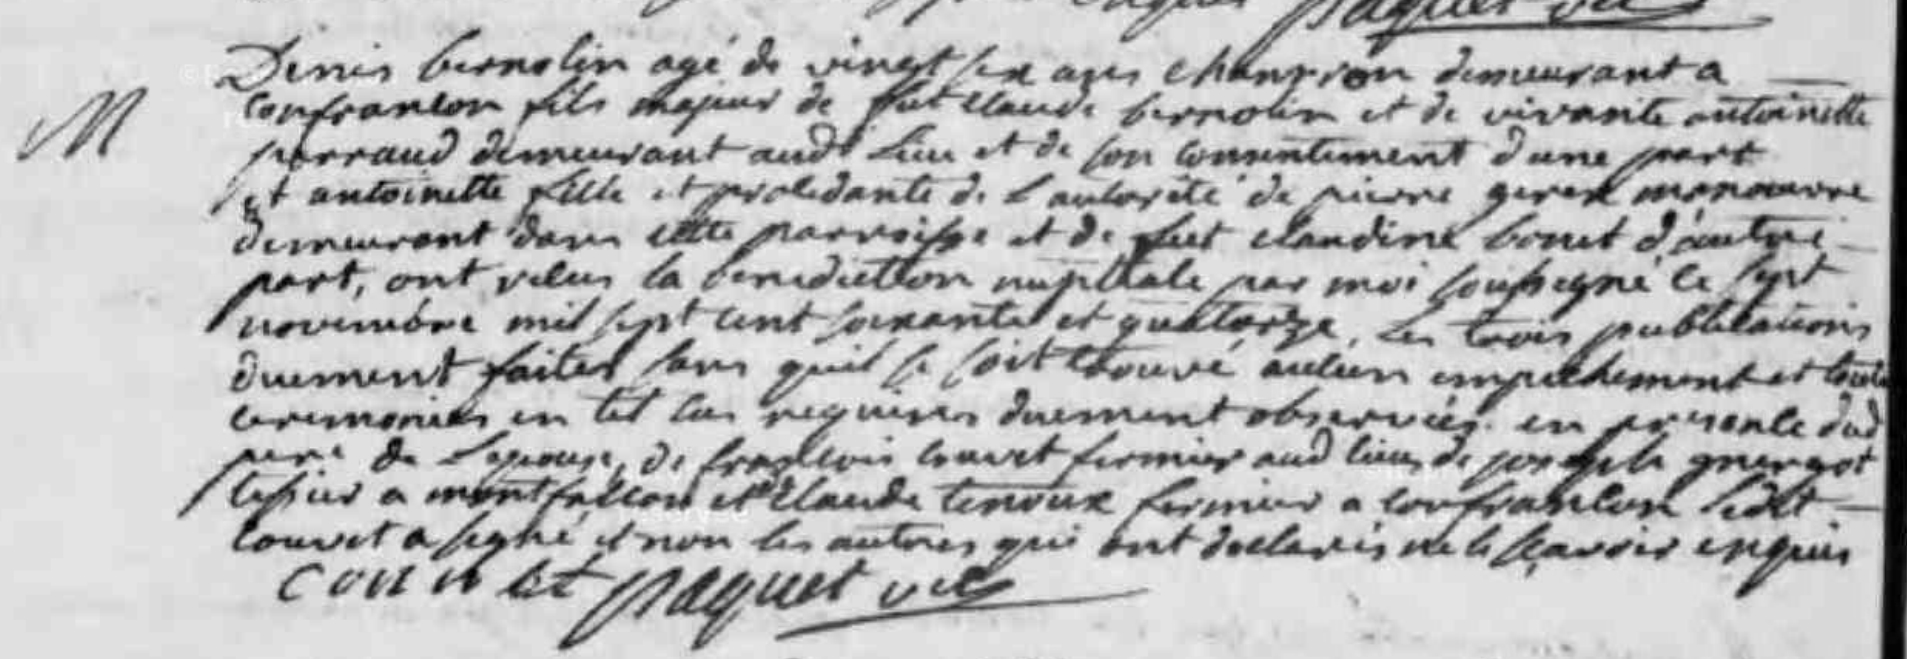 paquet vic
Denis bernolin agé de vingt six ans demeurant a
M
Confrancon fils majeur de fut Claude bernolin et de vivante antoinette
perraud demeurant aud lieu et de son consentement d'une part
et antoinette fille et procedante de l'autorité de pierre manoeuvre
demeurant dans cette parroisse et de fut claudine bonet d'autre
part, ont recus la benediction nuptiale par moi soussigné le sept
novembre mil sept cent soixante et quatorze, les trois publications
duement faites sans quil se soit trouvé aucun empechement et toutes
ceremonies en tel cas requises duement observées. en presence dud
pere de l'epouse, de francois couvet fermier aud lieu, de joseph
tessier a montfalcon et Claude tenoux fermier a confrancon ledit
couvet a signé et non les autres qui ont declarés ne le sçavoir enquis
couvet paquet vic